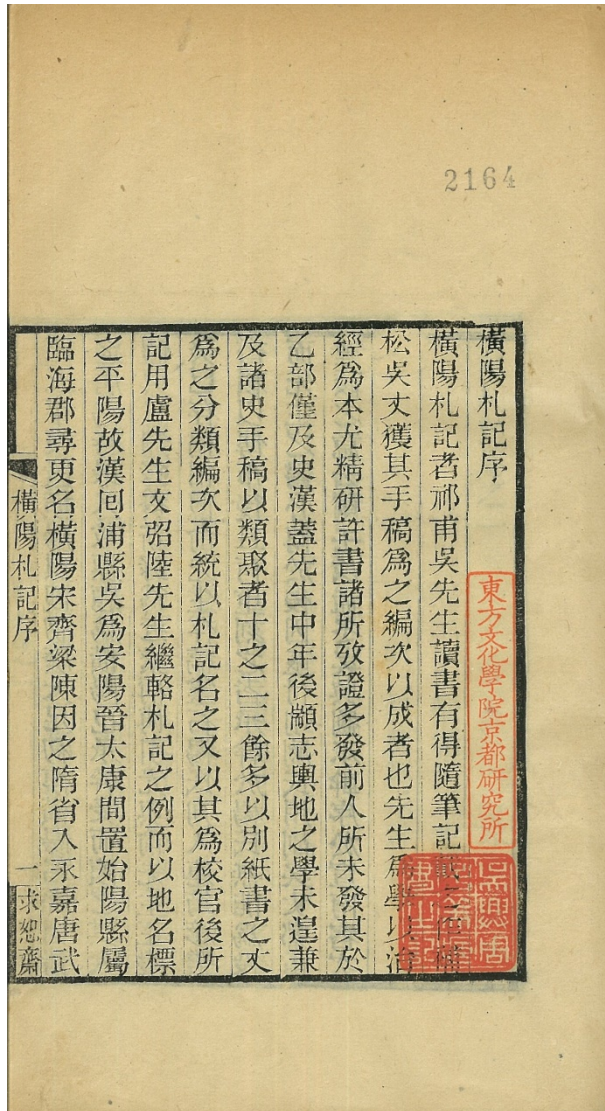 2164
橫陽札記序
東方文化學院京都研究所
橫陽札記者祁甫吳先生讀書有得隨筆記
松吳丈獲其手稿爲之編次以成者也先生爲學以治
經爲本尤精硏許書諸所攷證多發前人所未發其於
乙部僅及史漢蓋先生中年後顓志輿地之學未遑兼
及諸史手稿以類聚者十之二三餘多以別紙書之丈
爲之分類編次而統以札記名之又以其爲校官後所
記用盧先生文弨陸先生繼輅札記之例而以地名標
之平陽故漢囘浦縣吳爲安陽晉太康間置始陽縣屬
臨海郡尋更名橫陽宋齊梁陳因之隋省入永嘉唐武
橫陽札記序
一
求恕齋